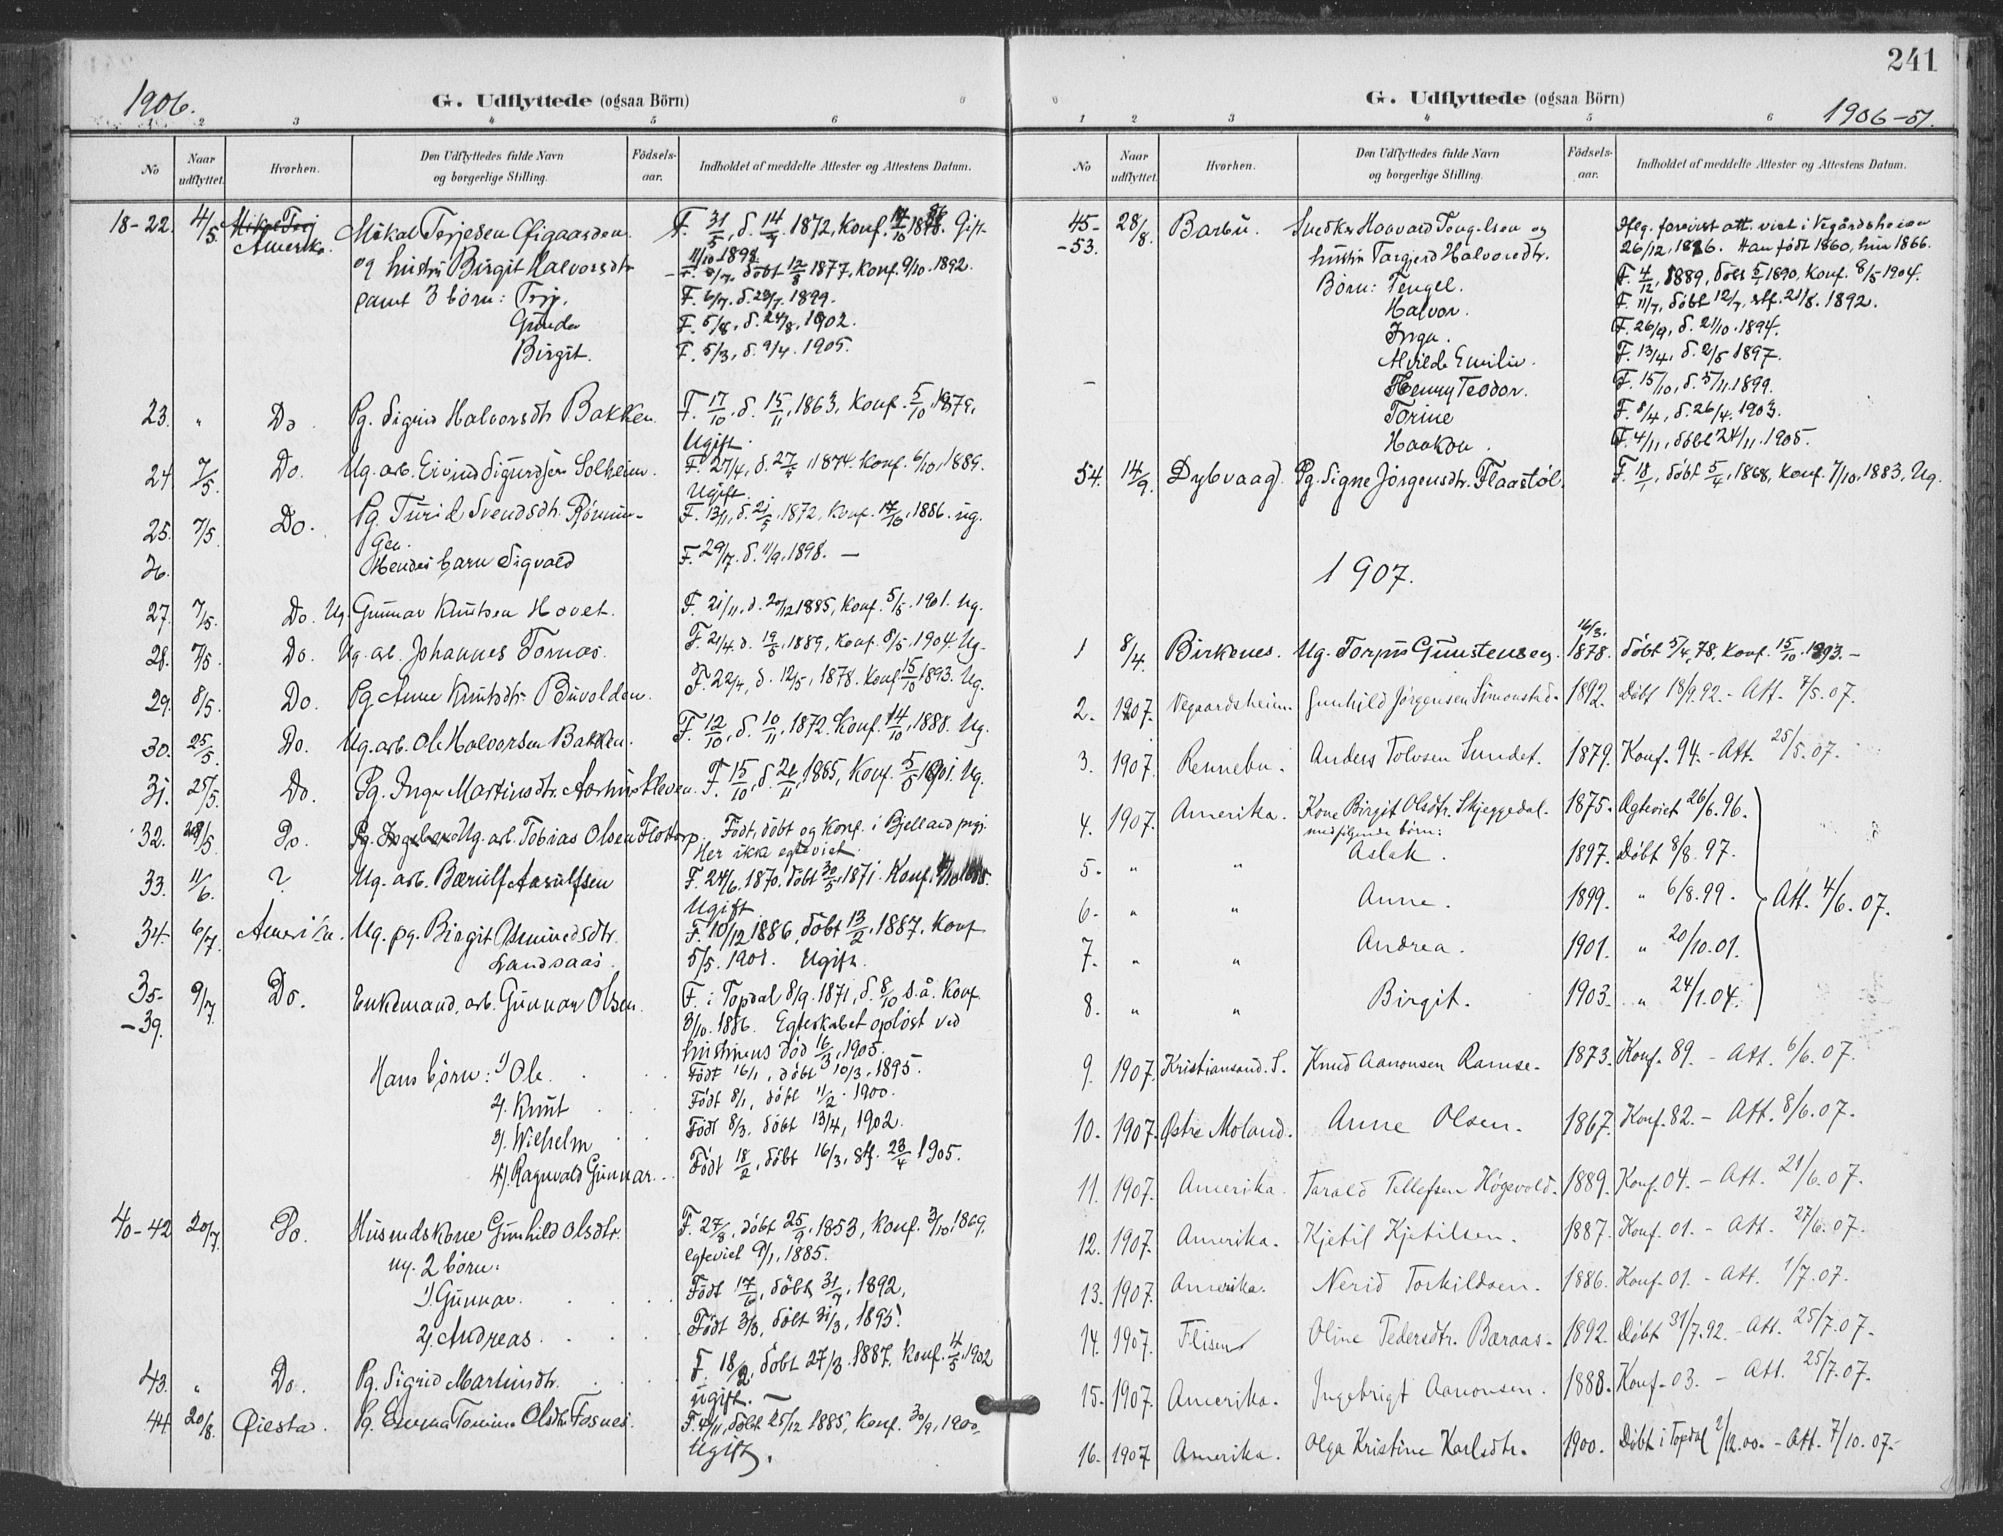 1906.
G. Udflyttede (ogsaa Börn)
1 2 3 4 5 6
No
Naar udflyttet.
Hvorhen.
Den Udflyttedes fulde Navn og borgerlige Stilling.
Födsels-aar.
Indholdet af meddelte Attester og Attestens Datum.
18-22. 4/5. Amerika. Mikal Terjesen Øigaarden F. 31/5, d. 14/7. 1872, Konf. Gift
11/10 1898.
og hustru Birgit Halvorsdtr. døbt 12/8 1877, Konf. 9/10. 1892.
samt 3 børn: Terj. F. 6/7. d. 23/7. 1899.
Gunda F. 5/8, d. 24/8, 1902.
Birgit. F. 5/3, d. 9/4. 1905.
23. " Do. Pg. Sigrid Halvorsdtr Bakken. F. 17/10. d. 15/11, 1863, Konf. 5/10, 1879.
Ugift.
24. 7/5. Do. Ug. arb. Eivind Sigurdsen Solheim. F. 27/4, d. 1874. Konf. 6/10, 1889.
Ugift.
25. 7/5. Do. Pg. Turid Svendsdtr. F. 13/11, d. 21/5, 1872, Konf. 17/10, 1886. ug.
26. Hendes barn Sigvald F. 29/7. d. 11/9. 1898. —
27. 7/5. Do. Ug. Gunnar Knutsen Hovet. F. 21/11, d. 20/12 1885, Konf. 5/5. 1901. Ug.
28. 7/5. Do. Ug. arb. Johannes Tornæs. F. 21/4. d. 19/5, 1889, Konf. 8/5. 1904. Ug.
29. 8/5. Do. Pg. Anne Knutsdtr. Buvolden. F. 22/4, d. 12/5, 1878. Konf. 15/10 1893. Ug.
30. 25/5. Do. Ug. arb. Ole Halvorsen Bakken. F. 12/10, d. 10/11, 1872. Konf. 14/10, 1888. Ug.
31. 25/5. Do. Pg. Inga Martinsdtr. F. 15/10, d. 1885, Konf. 5/5 1901. Ug.
32. 28/5. Do. Ug. arb. Tobias Olsen Flottorp. Født, døbt og Konf. i Bjelland prgj.
Her ikke egteviet.
33. 11/6. ? Ug. arb. Bærulf Aasulfsen F. 24/6. 1870. døbt 1871. Konf.
Ugift.
34. 6/7. Amerika. Ug. pg. Birgit Osmundsdtr. F. 10/12 1886, døbt 13/2, 1887. Konf
Landsaas. 5/5. 1901. Ugift.
35- 9/7. Do. Enkemand, arb. Gunnar Olsen. F. i Topdal 8/9. 1871, d. 8/10 s.å. Konf.
-39. 3/10. 1886. Egteskabet opløst ved
hustruens død 16/3, 1905.
Hans børn: 1) Ole. Født 16/1, døbt 10/3, 1895.
2. Knut Født 8/1, døbt 11/2. 1900.
3. Wilhelm Født 8/3. døbt 13/4, 1902.
4). Ragnvald Gunnar Født 18/2, døbt 16/3, stf. 23/4 1905.
40-42 20/7. Do. Husmdskone Gunhild Olsdtr. F. 27/8, døbt 25/9, 1853, Konf. 3/10, 1869.
m. 2 børn: egteviet 9/1, 1885.
1). Gunnar. Født 17/6, døbt 31/7, 1892.
2). Andreas. Født 3/3, døbt 31/3, 1895.
43. " Do. Pg. Sigrid Martinsdtr. F. 18/2, døbt 27/3. 1887. Konf. 4/5. 1902
ugift. —
44. 20/8. Øiestad. Pg. Emma Tomine Olsdtr. Fosnes. F. 4/11, døbt 25/12 1885, Konf. 30/9, 1900.
Ugift.
241
G. Udflyttede (ogsaa Börn)
1906-07.
1 2 3 4 5 6
No
Naar udflyttet.
Hvorhen.
Den Udflyttedes fulde Navn og borgerlige Stilling.
Födsels-aar.
Indholdet af meddelte Attester og Attestens Datum.
45- 28/8. Barbu. Snedker Haavard Tengelsen og Hflg. forevist att. viet i Vegårdsheien
-53. hustru Targjerd Halvorsdtr. 26/12, 1886. Han født 1860, hun 1866.
Børn: Tengel. F. 4/12, 1889, døbt 5/1 1890. Konf. 8/5 1904.
Halvor. F. 11/7, døbt 12/7, stf. 21/8. 1892.
Inga. F. 26/9, d. 21/10. 1894.
Alvilde Emilie. F. 13/4, d. 2/5 1897.
Henny Teodor. F. 15/10, d. 5/11. 1899.
Torine F. 8/4, d. 26/4. 1903.
Haakon. F. 4/11, døbt 24/11. 1905.
54. 14/9. Dybvaag. Pg. Signe Jørgensdtr. Flaastøl. F. 18/1, døbt 5/4, 1868, Konf. 7/10, 1883. Ug.
1907.
1 8/4. Birkenes. Ug. Torjus Gunstensen. 16/3. 1878. døbt 5/4, 78, Konf. 15/10. 1893. —
2. 1907. Vegaardsheien. Gunhild Jørgensen Simonstad. 1892. Døbt 18/9.92. - Att. 7/5.07.
3. 1907. Rennebu. Anders Tolvsen Sundet. 1879. Konf. 94. - Att. 25/5.07.
4. 1907. Amerika. Kone Birgit Olsdtr. Skjeggedal. 1875. Egteviet 26/6.96.
medfølgende børn:
5. " " Aslak. 1897. Døbt 8/8.97.
6. " " Anne. 1899. " 6/8.99. Att. 4/6.07.
7. " " Andrea. 1901. " 20/10.01.
8. " " Birgit. 1903. " 24/1.04.
9. 1907. Kristiansand. S. Knud Aanonsen Ramse. 1873. Konf. 89. - Att. 6/6.07.
10. 1907. Østre Moland. Anne Olsen. 1867. Konf. 82. - Att. 8/6.07.
11. 1907. Amerika. Tarald Tellefsen Høgevold. 1889. Konf. 04. - Att. 21/6.07.
12. 1907. Amerika. Kjetil Kjetilsen. 1887. Konf. 01. - Att. 27/6.07.
13. 1907. Amerika. Nerid Torkildsen. 1886. Konf. 01. - Att. 1/7.07.
14. 1907. Flisen Oline Pedersdtr. Baraas. 1892. Døbt 31/7.92. - Att. 25/7.07.
15. 1907. Amerika. Ingebrigt Aanonsen. 1888. Konf. 03. - Att. 25/7.07.
16. 1907 Amerika. Olga Kristine Karlsdtr. 1900. Døbt i Topdal 2/12.00. - Att. 7/10.07.